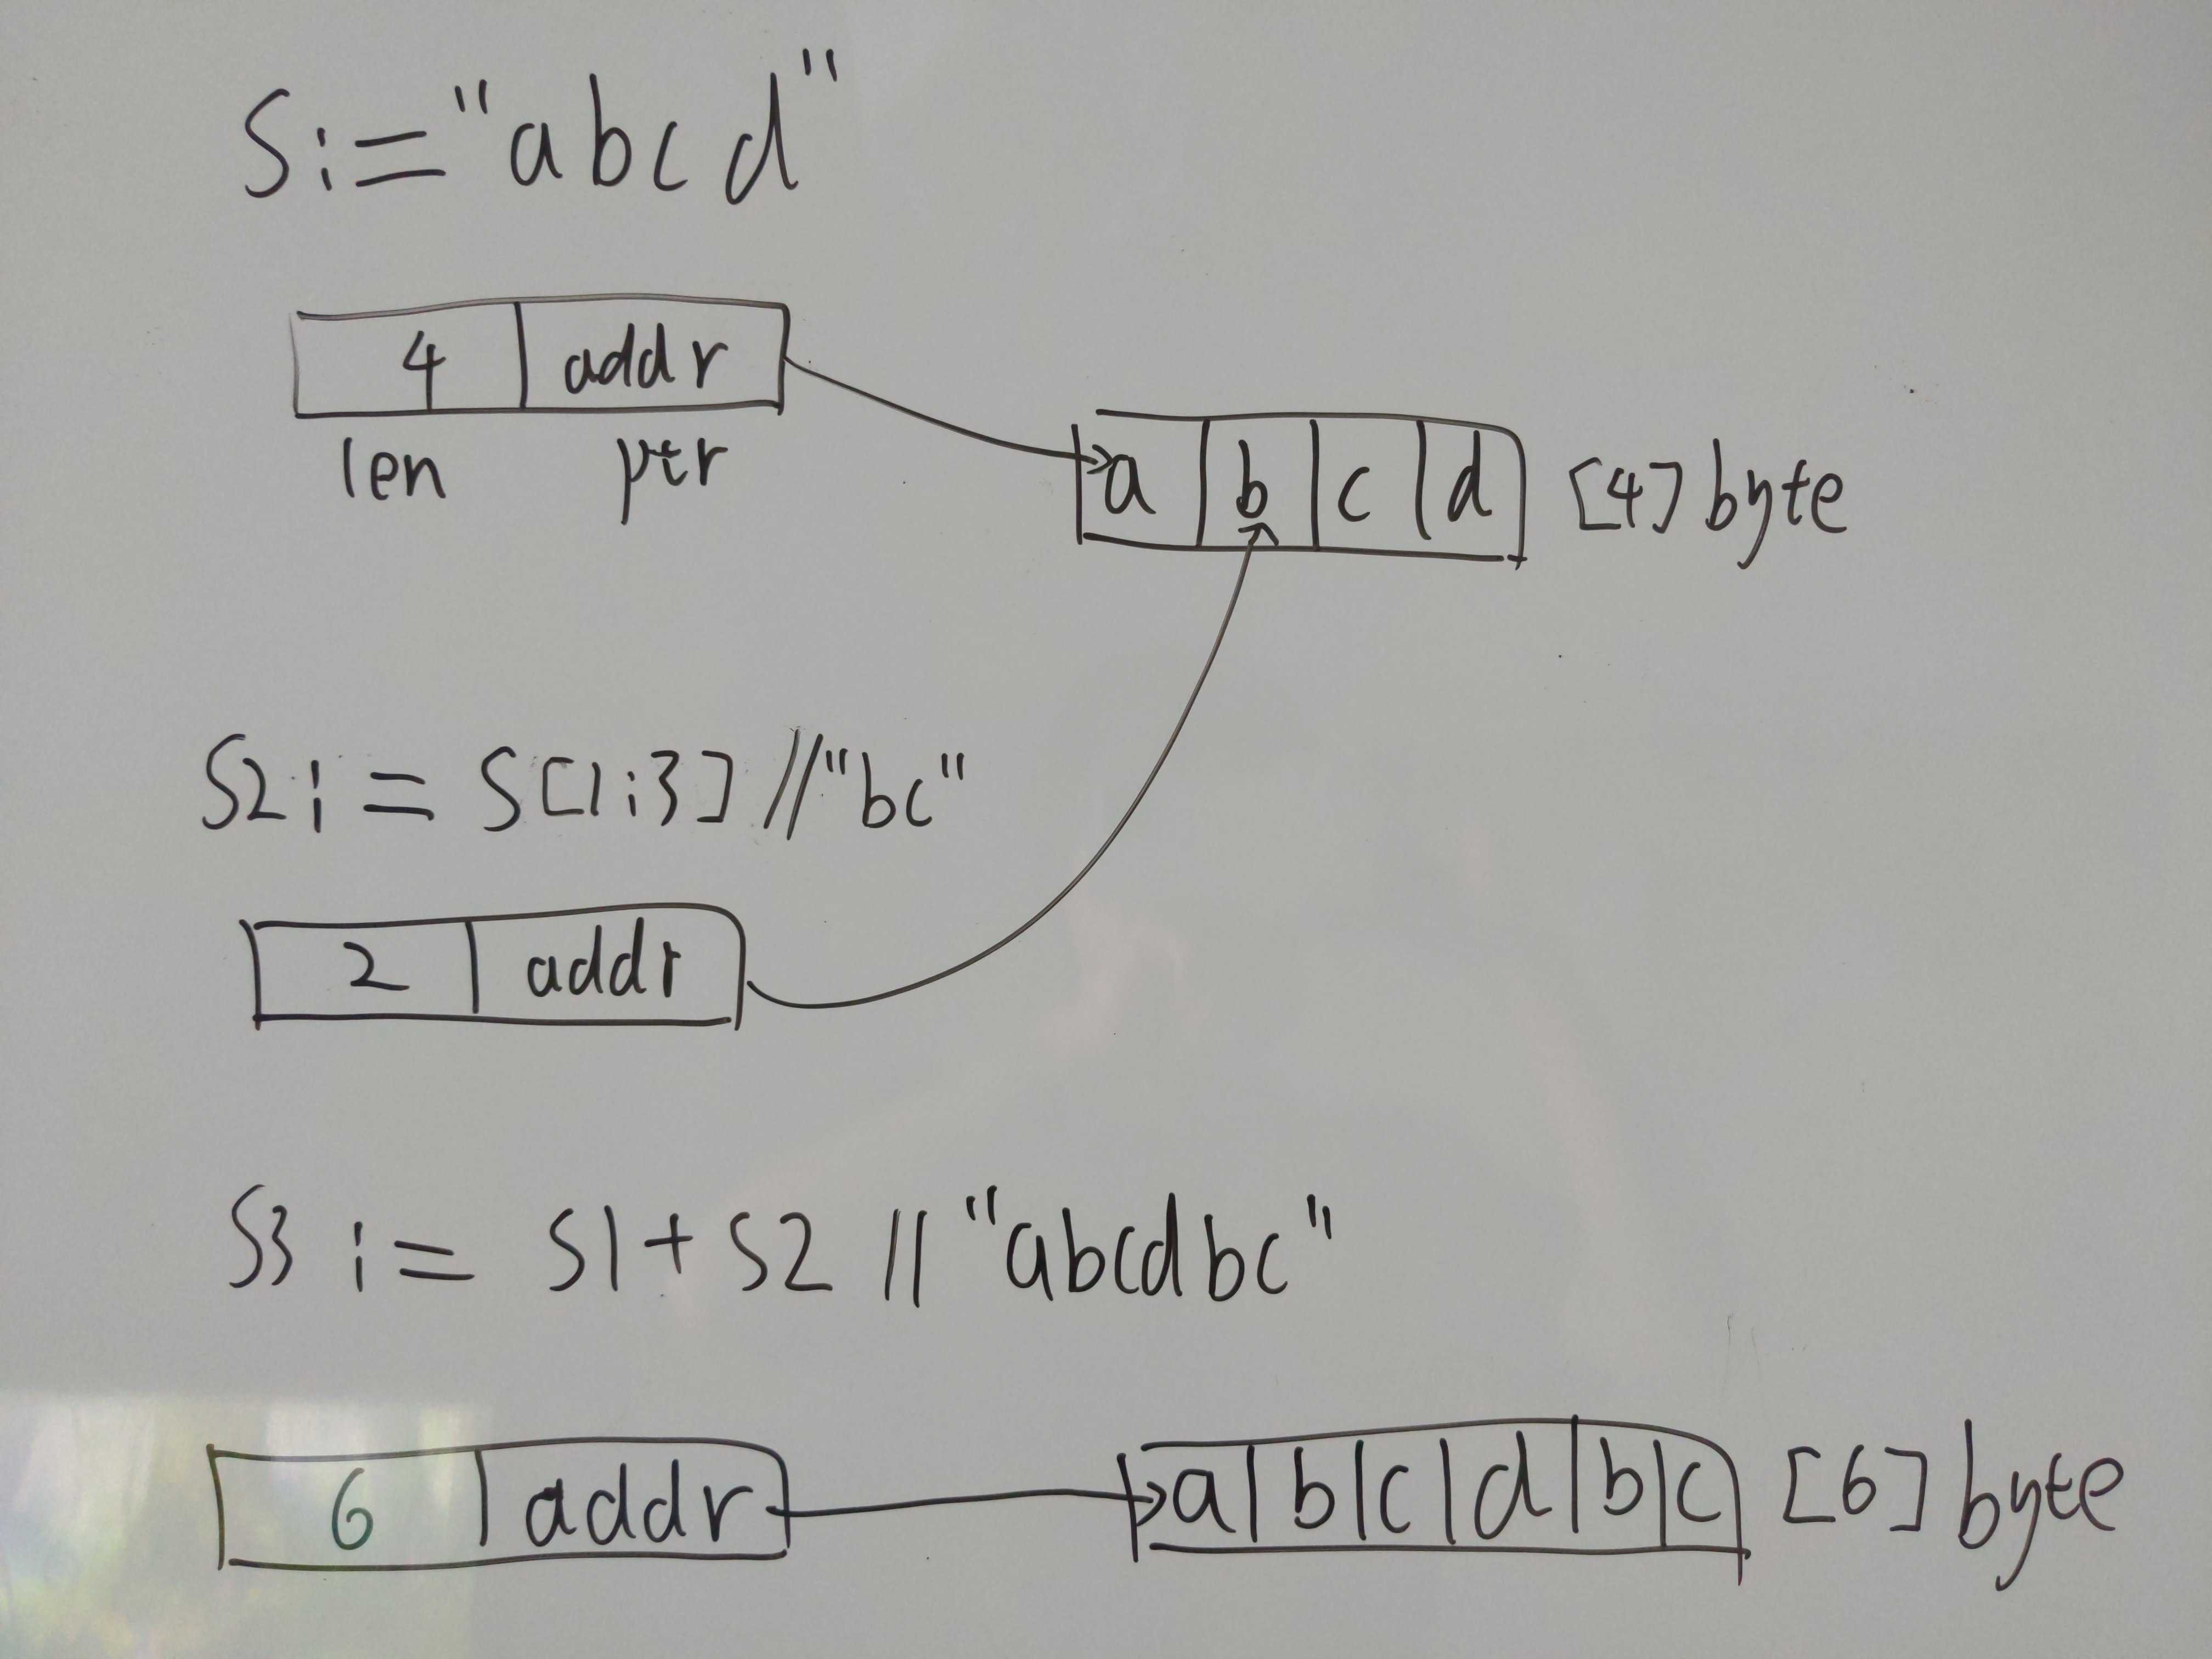 S:="abcd"
4 addr
len ptr
a b c d [4]byte
S2:=S[1:3]//"bc"
2 addr
S3 := S1+S2 // "abcdbc"
6 addr a b c d b c [6]byte